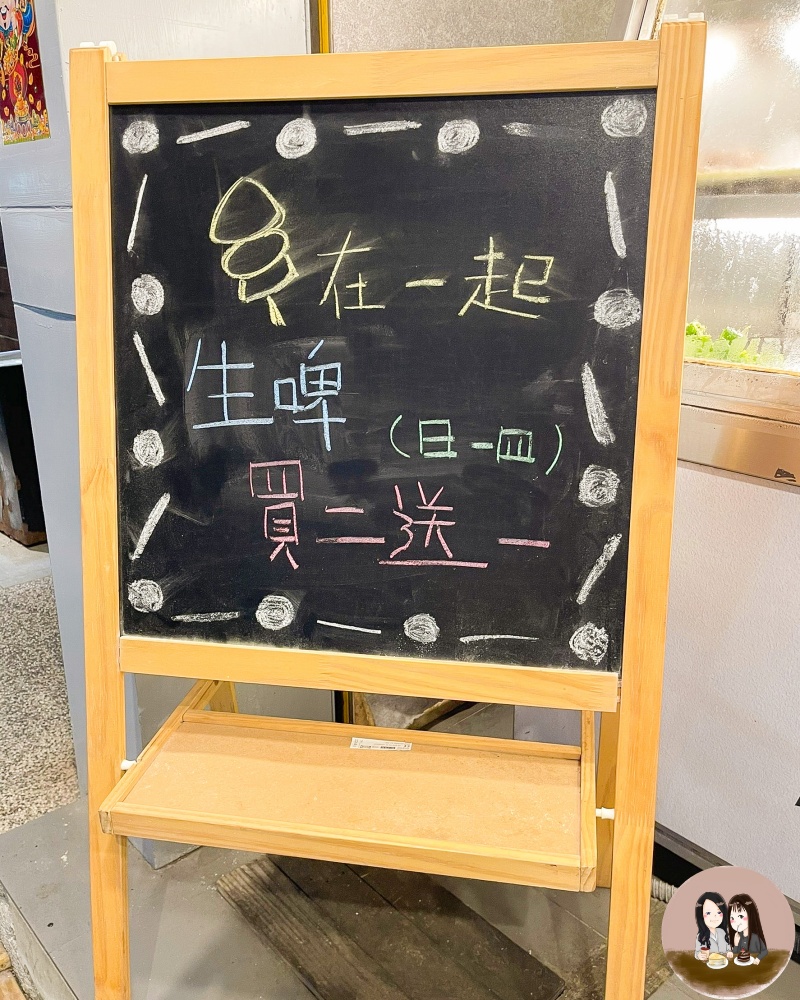 在一起
生啤
(日-四)
買二送一